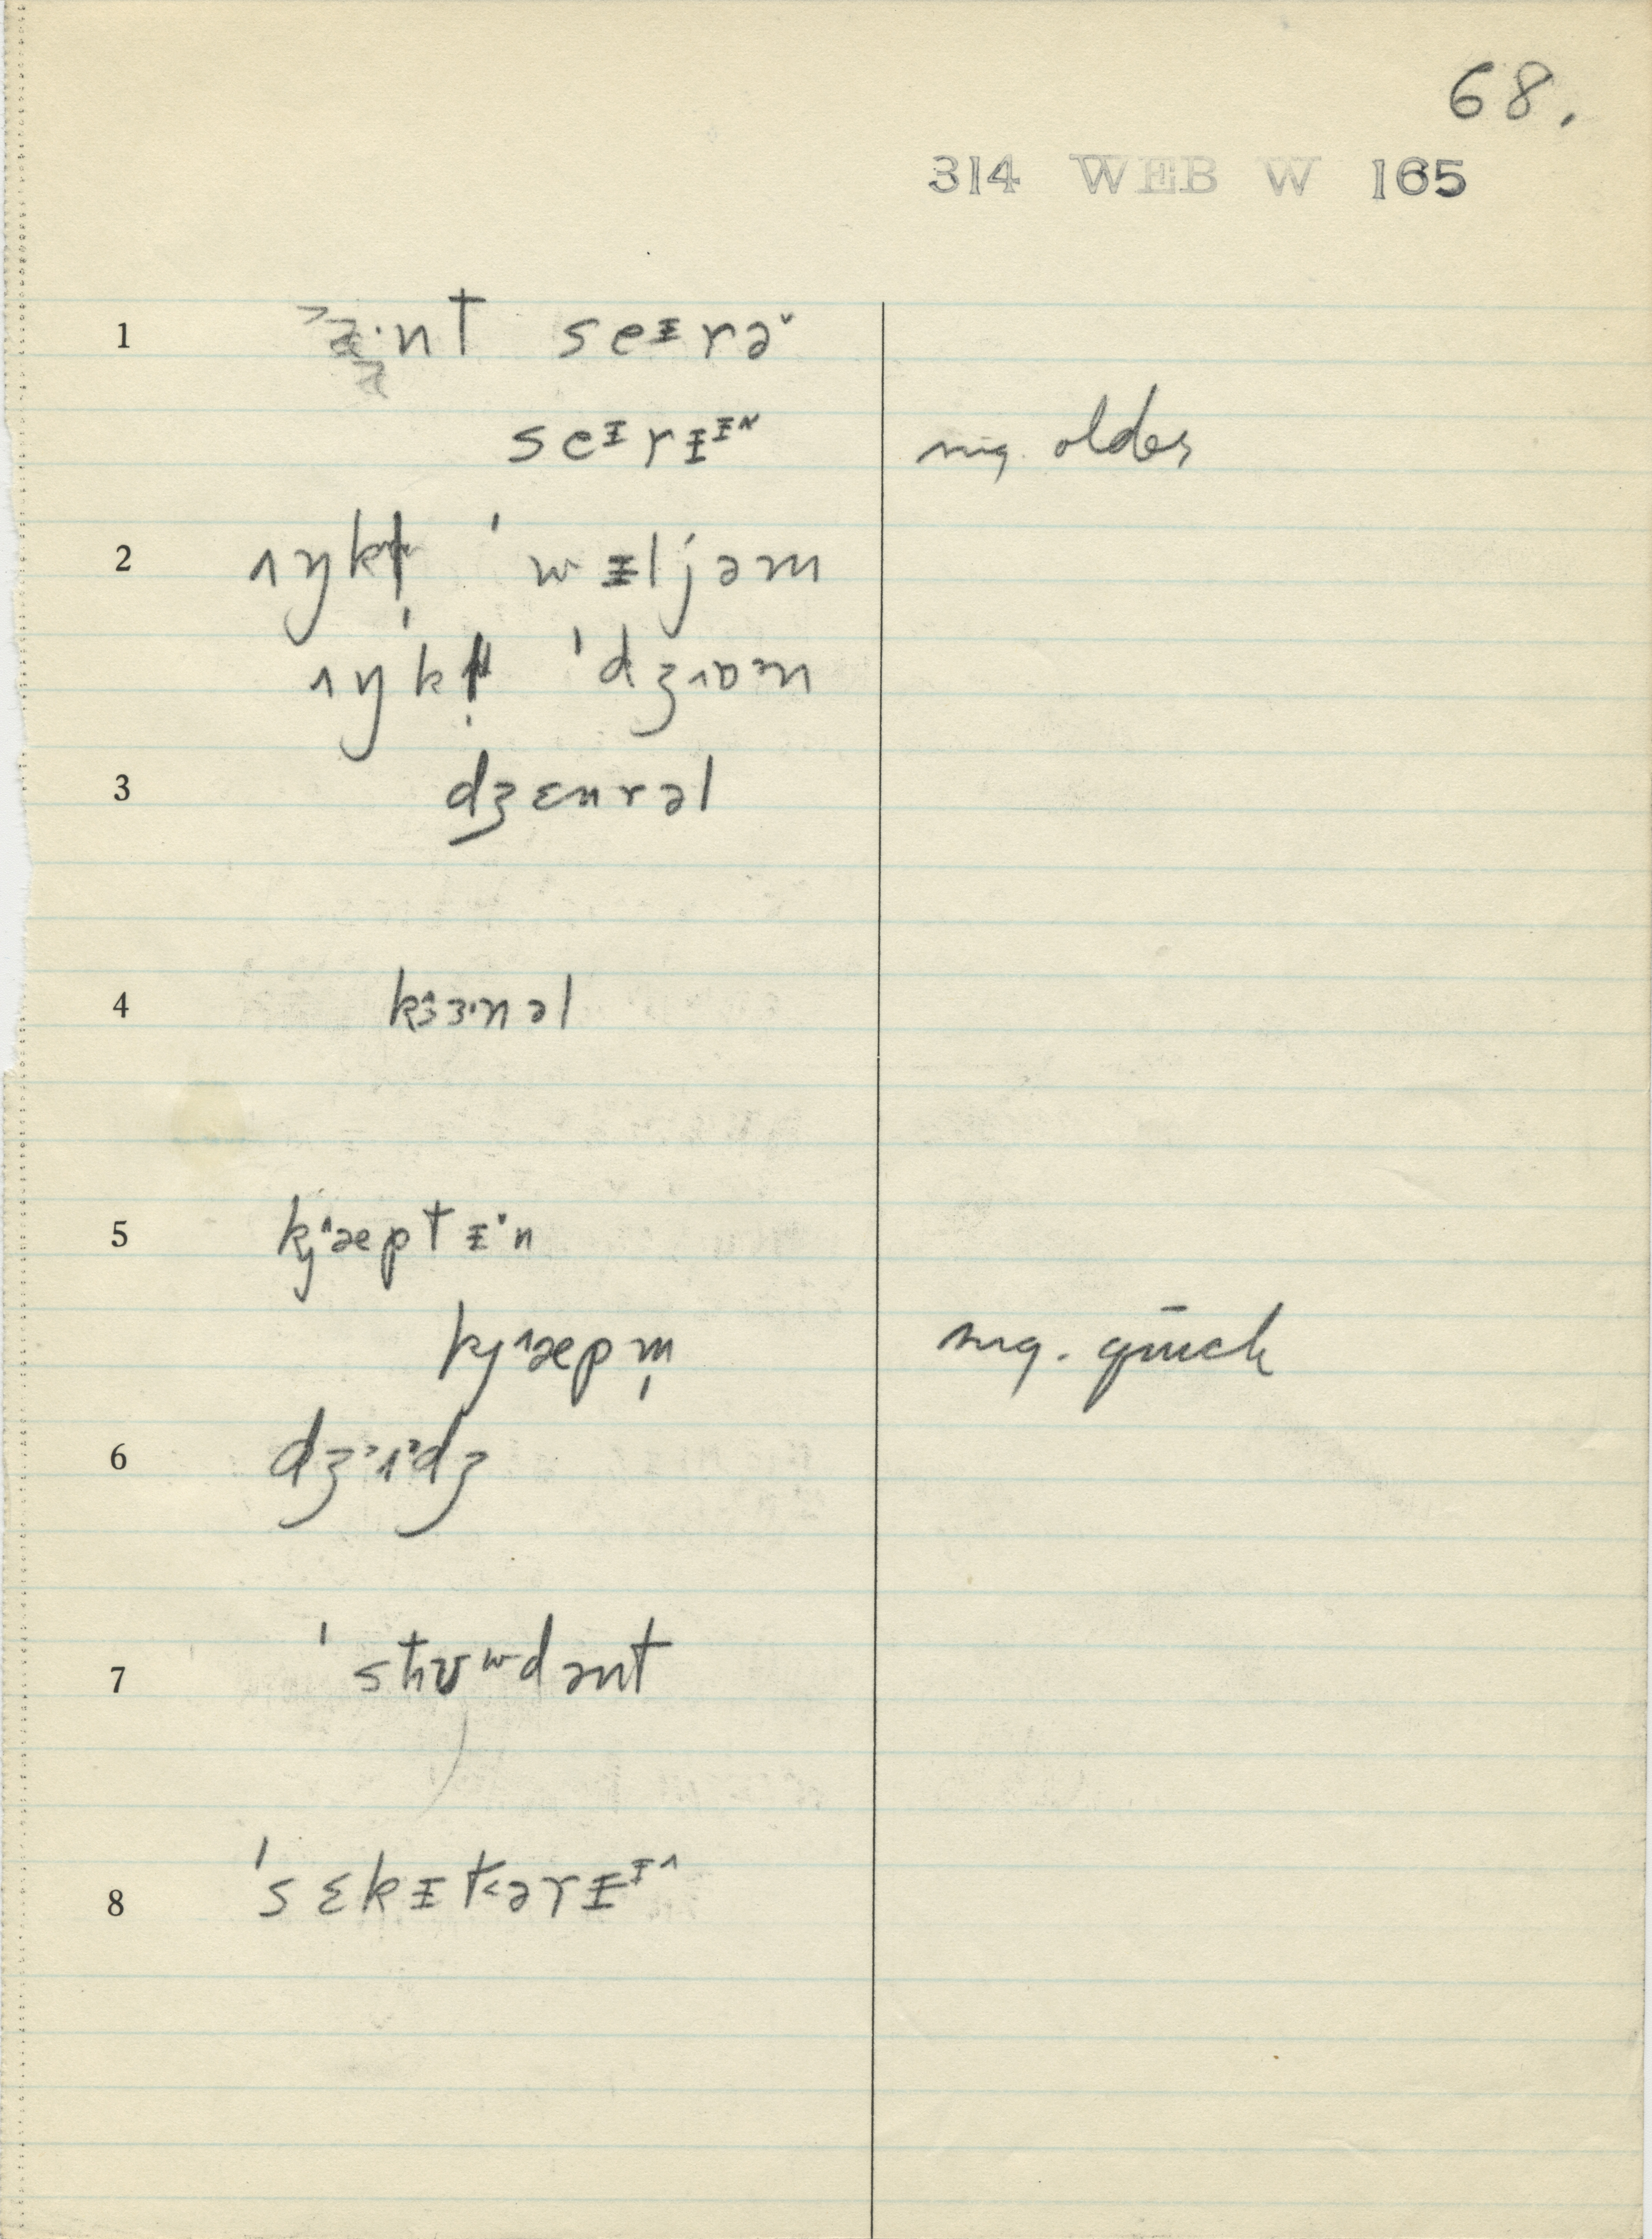 68.
314 WEB W 165
1 æ·nt seᵻrə˅
seᵻrᵻᵻ˄ mg. older
2 ʌŋkɫ̩ ˈwᵻljəm
ʌŋkɫ̩ ˈdʒɒm
3 dʒɛnrəl
4 kɜɜ·nəl
5 kj˄æptᵻ˅n
kj˄æpm̩ mg. quick
6 dʒʌdʒ
7 ˈstʊʷdənt
8 ˈsɛkᵻt˂ərᵻᵻ˄